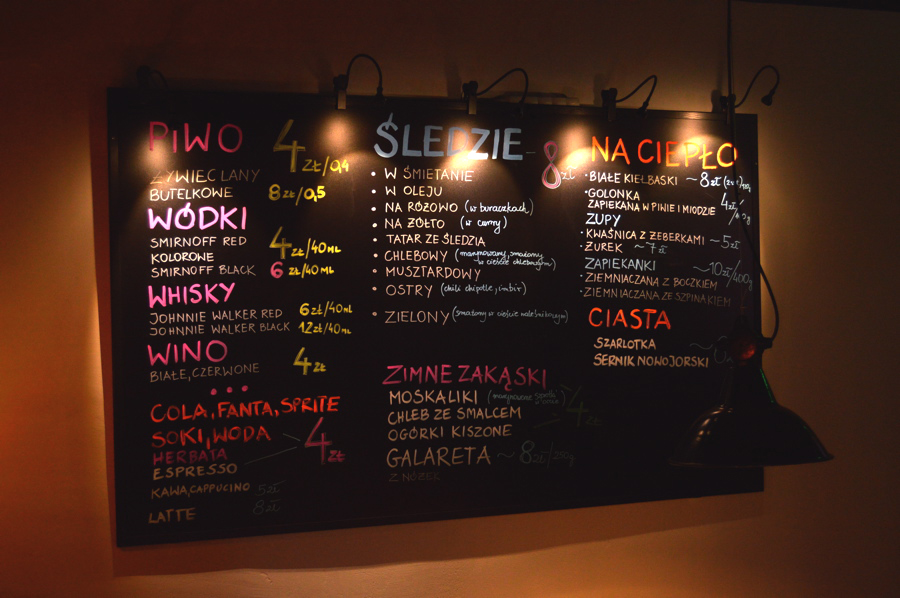 PIWO 4 zł/0,4
ŻYWIEC LANY
BUTELKOWE 8 zł/0,5
WÓDKI
SMIRNOFF RED
KOLOROWE 4 zł/40 ML
SMIRNOFF BLACK 6 zł/40 ML
WHISKY
JOHNNIE WALKER RED 6 zł/40 ML
JOHNNIE WALKER BLACK 12 zł/40 ML
WINO
BIAŁE, CZERWONE 4 zł
...
COLA, FANTA, SPRITE
SOKI, WODA
HERBATA 4 zł
ESPRESSO
KAWA, CAPPUCINO 5 zł
LATTE 8 zł
ŚLEDZIE 8 zł
• W ŚMIETANIE
• W OLEJU
• NA RÓŻOWO (w buraczkach)
• NA ŻÓŁTO (w curry)
• TATAR ZE ŚLEDZIA
• CHLEBOWY (marynowany, smażony
w cieście chlebowym)
• MUSZTARDOWY
• OSTRY (chili chipotle, imbir)
• ZIELONY (smażony w cieście naleśnikowym)
ZIMNE ZAKĄSKI
MOSKALIKI
CHLEB ZE SMALCEM 4 zł
OGÓRKI KISZONE
GALARETA ~ 8 zł/250g
Z NÓŻEK
NA CIEPŁO
• BIAŁE KIEŁBASKI ~ 8 zł
• GOLONKA 4 zł/
ZAPIEKANA W PIWIE I MIODZIE
ZUPY
• KWAŚNICA Z ŻEBERKAMI ~ 5 zł
• ŻUREK ~ 7 zł
ZAPIEKANKI ~10 zł/400g
• ZIEMNIACZANA Z BOCZKIEM
• ZIEMNIACZANA ZE SZPINAKIEM
CIASTA
SZARLOTKA
SERNIK NOWOJORSKI